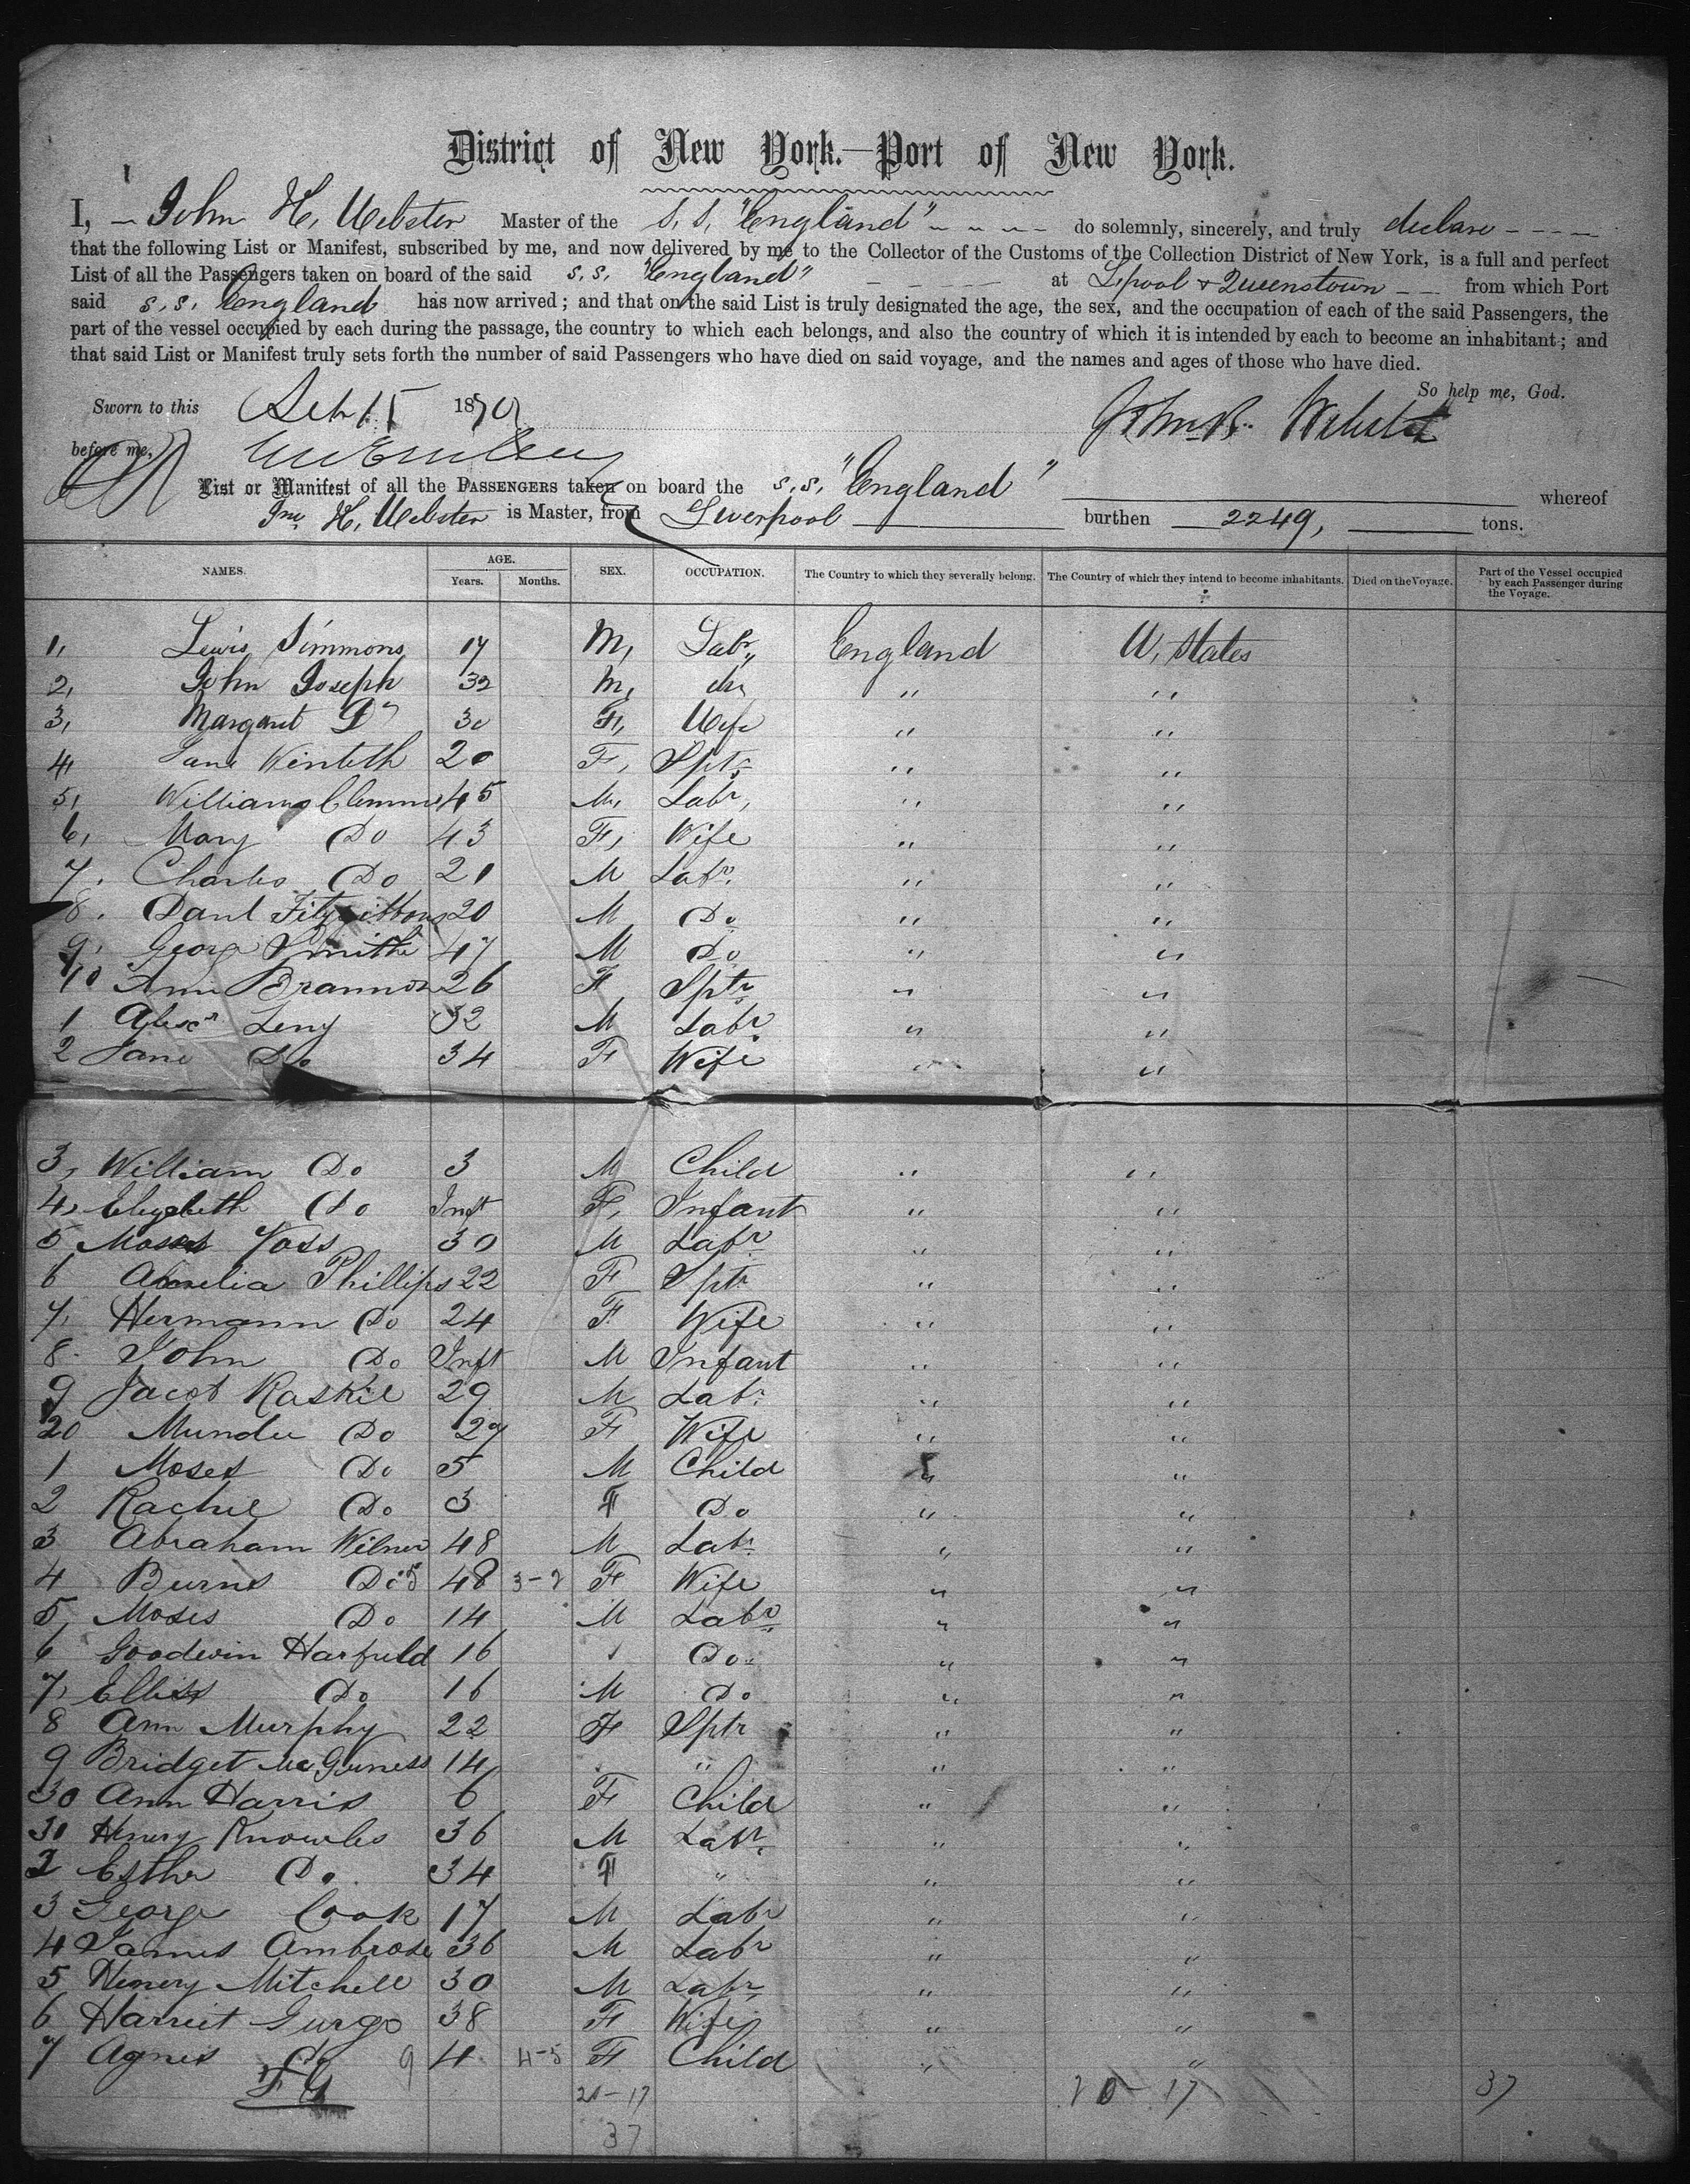 District of New York.—Port of New York.
I, John H. Webster Master of the S.S. "England" do solemnly, sincerely, and truly declare
that the following List or Manifest, subscribed by me, and now delivered by me to the Collector of the Customs of the Collection District of New York, is a full and perfect
List of all the Passengers taken on board of the said s.s. "England" at L'pool & Queenstown from which Port
said s.s. England has now arrived; and that on the said List is truly designated the age, the sex, and the occupation of each of the said Passengers, the
part of the vessel occupied by each during the passage, the country to which each belongs, and also the country of which it is intended by each to become an inhabitant; and
that said List or Manifest truly sets forth the number of said Passengers who have died on said voyage, and the names and ages of those who have died.
So help me, God.
Sworn to this 15 1870 Webster
before me,
List or Manifest of all the PASSENGERS taken on board the s.s. "England" whereof
Jno H. Webster is Master, from Liverpool burthen 2249, tons.
NAMES. AGE. SEX. OCCUPATION. The Country to which they severally belong. The Country of which they intend to become inhabitants. Died on the Voyage. Part of the Vessel occupied by each Passenger during the Voyage.
Years. Months.
1, Lewis Simmons 17 M, Labr, England U, States
2, John Joseph 32 M, do " "
3, Margaret Do 30 F, Wife " "
4, Jane 20 F, Sptr " "
5, Williams 45 M, Labr, " "
6, Mary Do 43 F, Wife " "
7. Charles Do 21 M Labr. " "
8. Danl Fitzgibbons 20 M Do " "
9, George Smith 47 M Do " "
10 Ann Brannon 26 F Sptr " "
1 Alexr Leny 32 M Labr " "
2 Jane Do 34 F Wife " "
3, William Do 3 M Child " "
4, Elizabeth Do Inft F, Infant " "
5, Moses Voss 30 M Labr " "
6 Amelia Phillips 22 F Sptr " "
7, Hermann Do 24 F Wife " "
8. John Do Inft M Infant " "
9 Jacob Raskil 29 M Labr " "
20 Mundu Do 27 F Wife " "
1 Moses Do 5 M Child " "
2 Rachil Do 3 F Do " "
3 Abraham Wilner 48 M Labr " "
4 Burns Do 48 F Wife " "
5, Moses Do 14 M Labr " "
6 Goodwin Harfield 16 Do " "
7, Ellis Do 16 M Do " "
8 Ann Murphy 22 F Sptr " "
9 Bridget McGuiness 14 " " "
30 Ann Harris 6 F Child " "
30 Henry Knowles 36 M Labr " "
2 Esther Do 34 F " " "
3 George Cook 17 M Labr " "
4 James Ambrose 36 M Labr " "
5 Henery Mitchell 30 M Labr " "
6 Harriet Gurgo 38 F Wife " "
7 Agnes Do 9 4 4-5 F Child " "
20-17 20-17 37
37